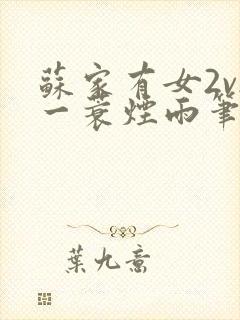 蘇家有女2v
一蓑煙雨筆
葉九意